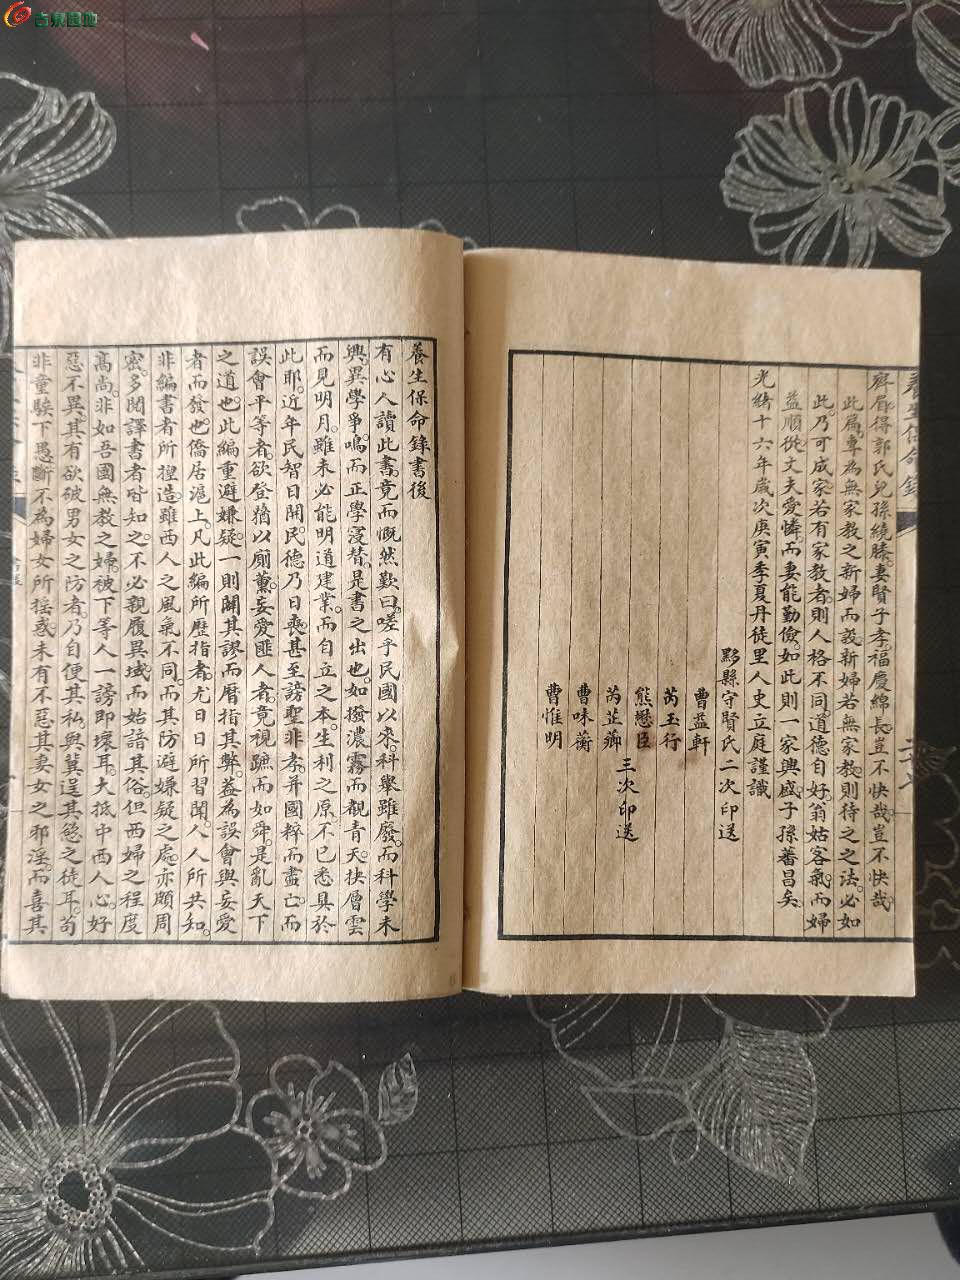 古泉園地
養生保命錄
二十七
齊眉得郭氏兒孫繞膝。妻賢子孝。福慶綿長。豈不快哉。豈不快哉。
此屬專為無家教之新婦而設。新婦若無家教。則待之之法。必如
此。乃可成家。若有家教者。則人格不同。道德自好。翁姑客氣。而婦
益順從。丈夫愛憐。而妻能勤儉。如此則一家興盛。子孫蕃昌矣。
光緒十六年歲次庚寅季夏丹徒里人史立庭謹識
黟縣守賢氏二次印送
曹益軒
芮玉行
熊懋臣
芮芷薌
三次印送
曹味蘅
曹惟明
養生保命錄書後
有心人讀此書。竟而慨然歎曰。嗟乎。民國以來。科舉雖廢。而科學未
興。異學爭鳴。而正學寖替。是書之出也。如撥濃霧而觀青天。抉層雲
而見明月。雖未必能明道建業。而自立之本。生利之原。不已悉具於
此耶。近年民智日開。民德乃日喪。甚至謗聖非孝。并國粹而盡亡。而
誤會平等者。欲登猶以廁薰。妄愛匪人者。竟視蹠而如舜。是亂天下
之道也。此編重避嫌疑。一則闢其謬。而曆指其弊。益為誤會與妄愛
者而發也。僑居滬上。凡此編所歷指者。尤日日所習聞。人人所共知。
非編書者所揑造。雖西人之風氣不同。而其防避嫌疑之處。亦頗周
密。多閱譯書者耐知之。不必親履異域。而始諳其俗。但西婦之程度
高尚。非如吾國無教之婦。被下等人一謗即壞耳。大抵中西人心好
惡不異。其有欲破男女之防者。乃自便其私與冀逞其慾之徒耳。苟
非童騃下愚。斷不為婦女所揺惑。未有不惡其妻女之邪淫。而喜其